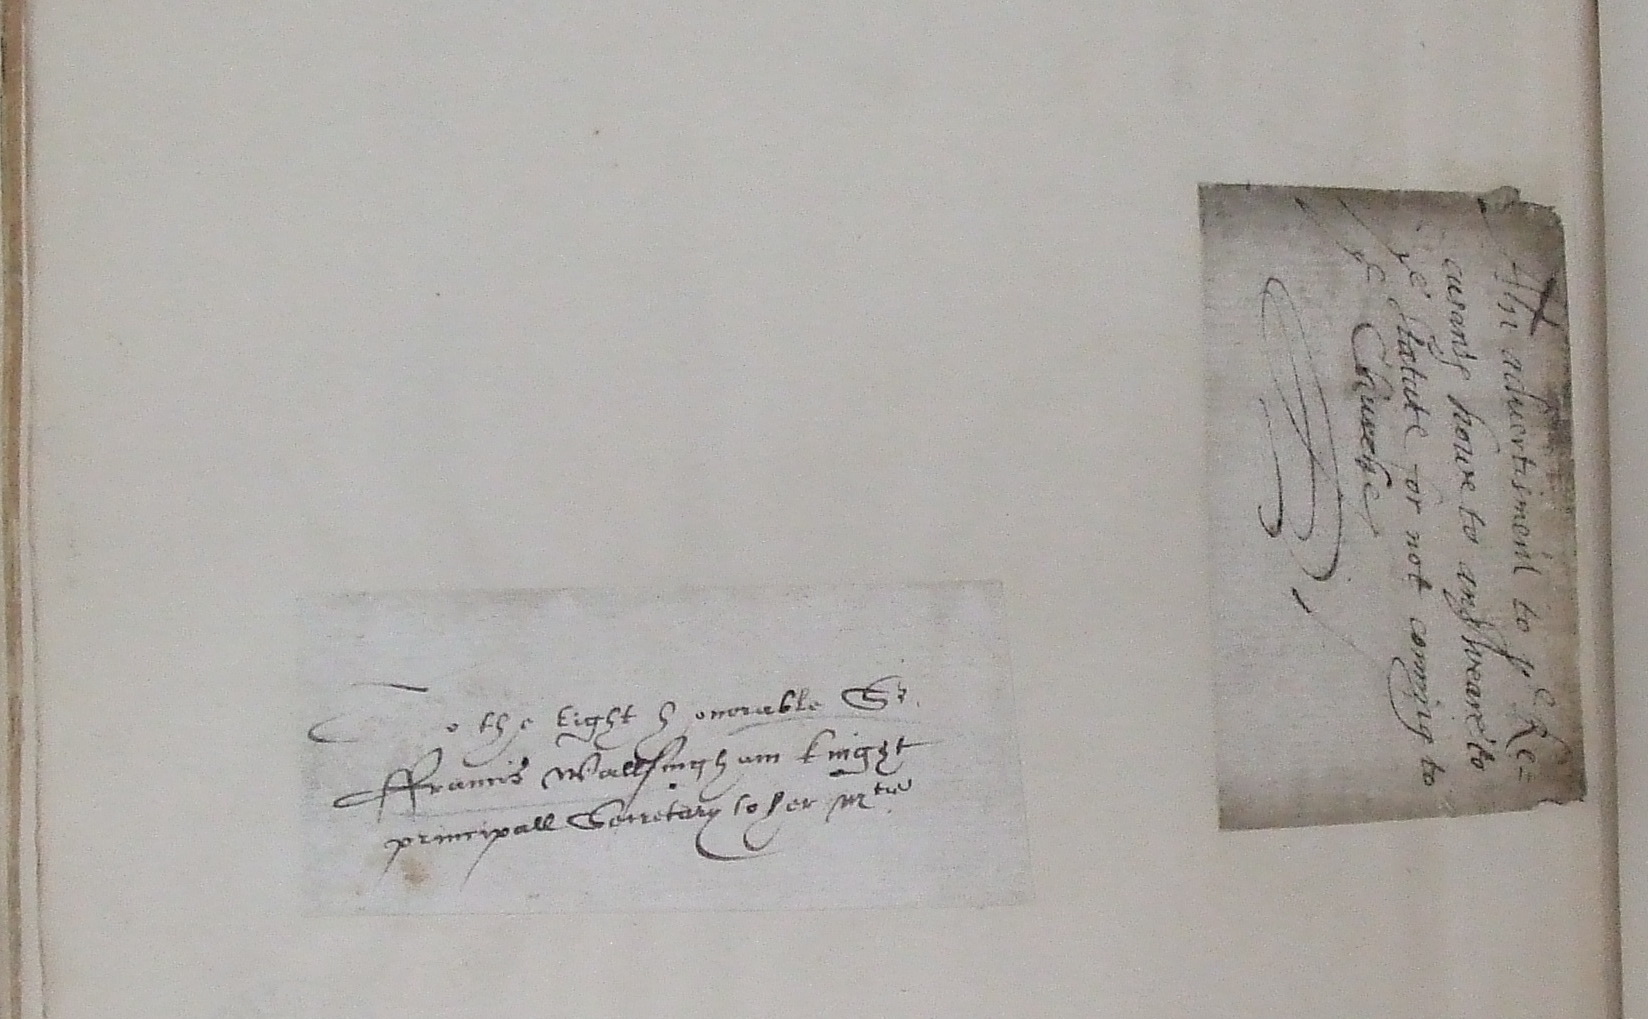 To the right honorable Sr.
ffrancis Wallsingham knight
principall Secretary to her Mtie.
An advertisment to ye Re=
cusants howe to answeare to
ye statute for not comming to
ye Churche